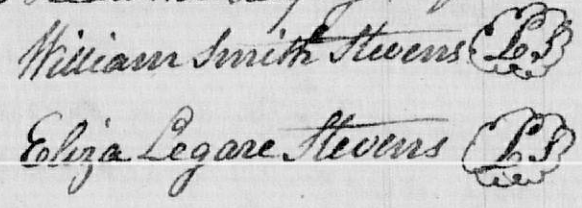 William Smith Stevens LS
Eliza Legare Stevens LS